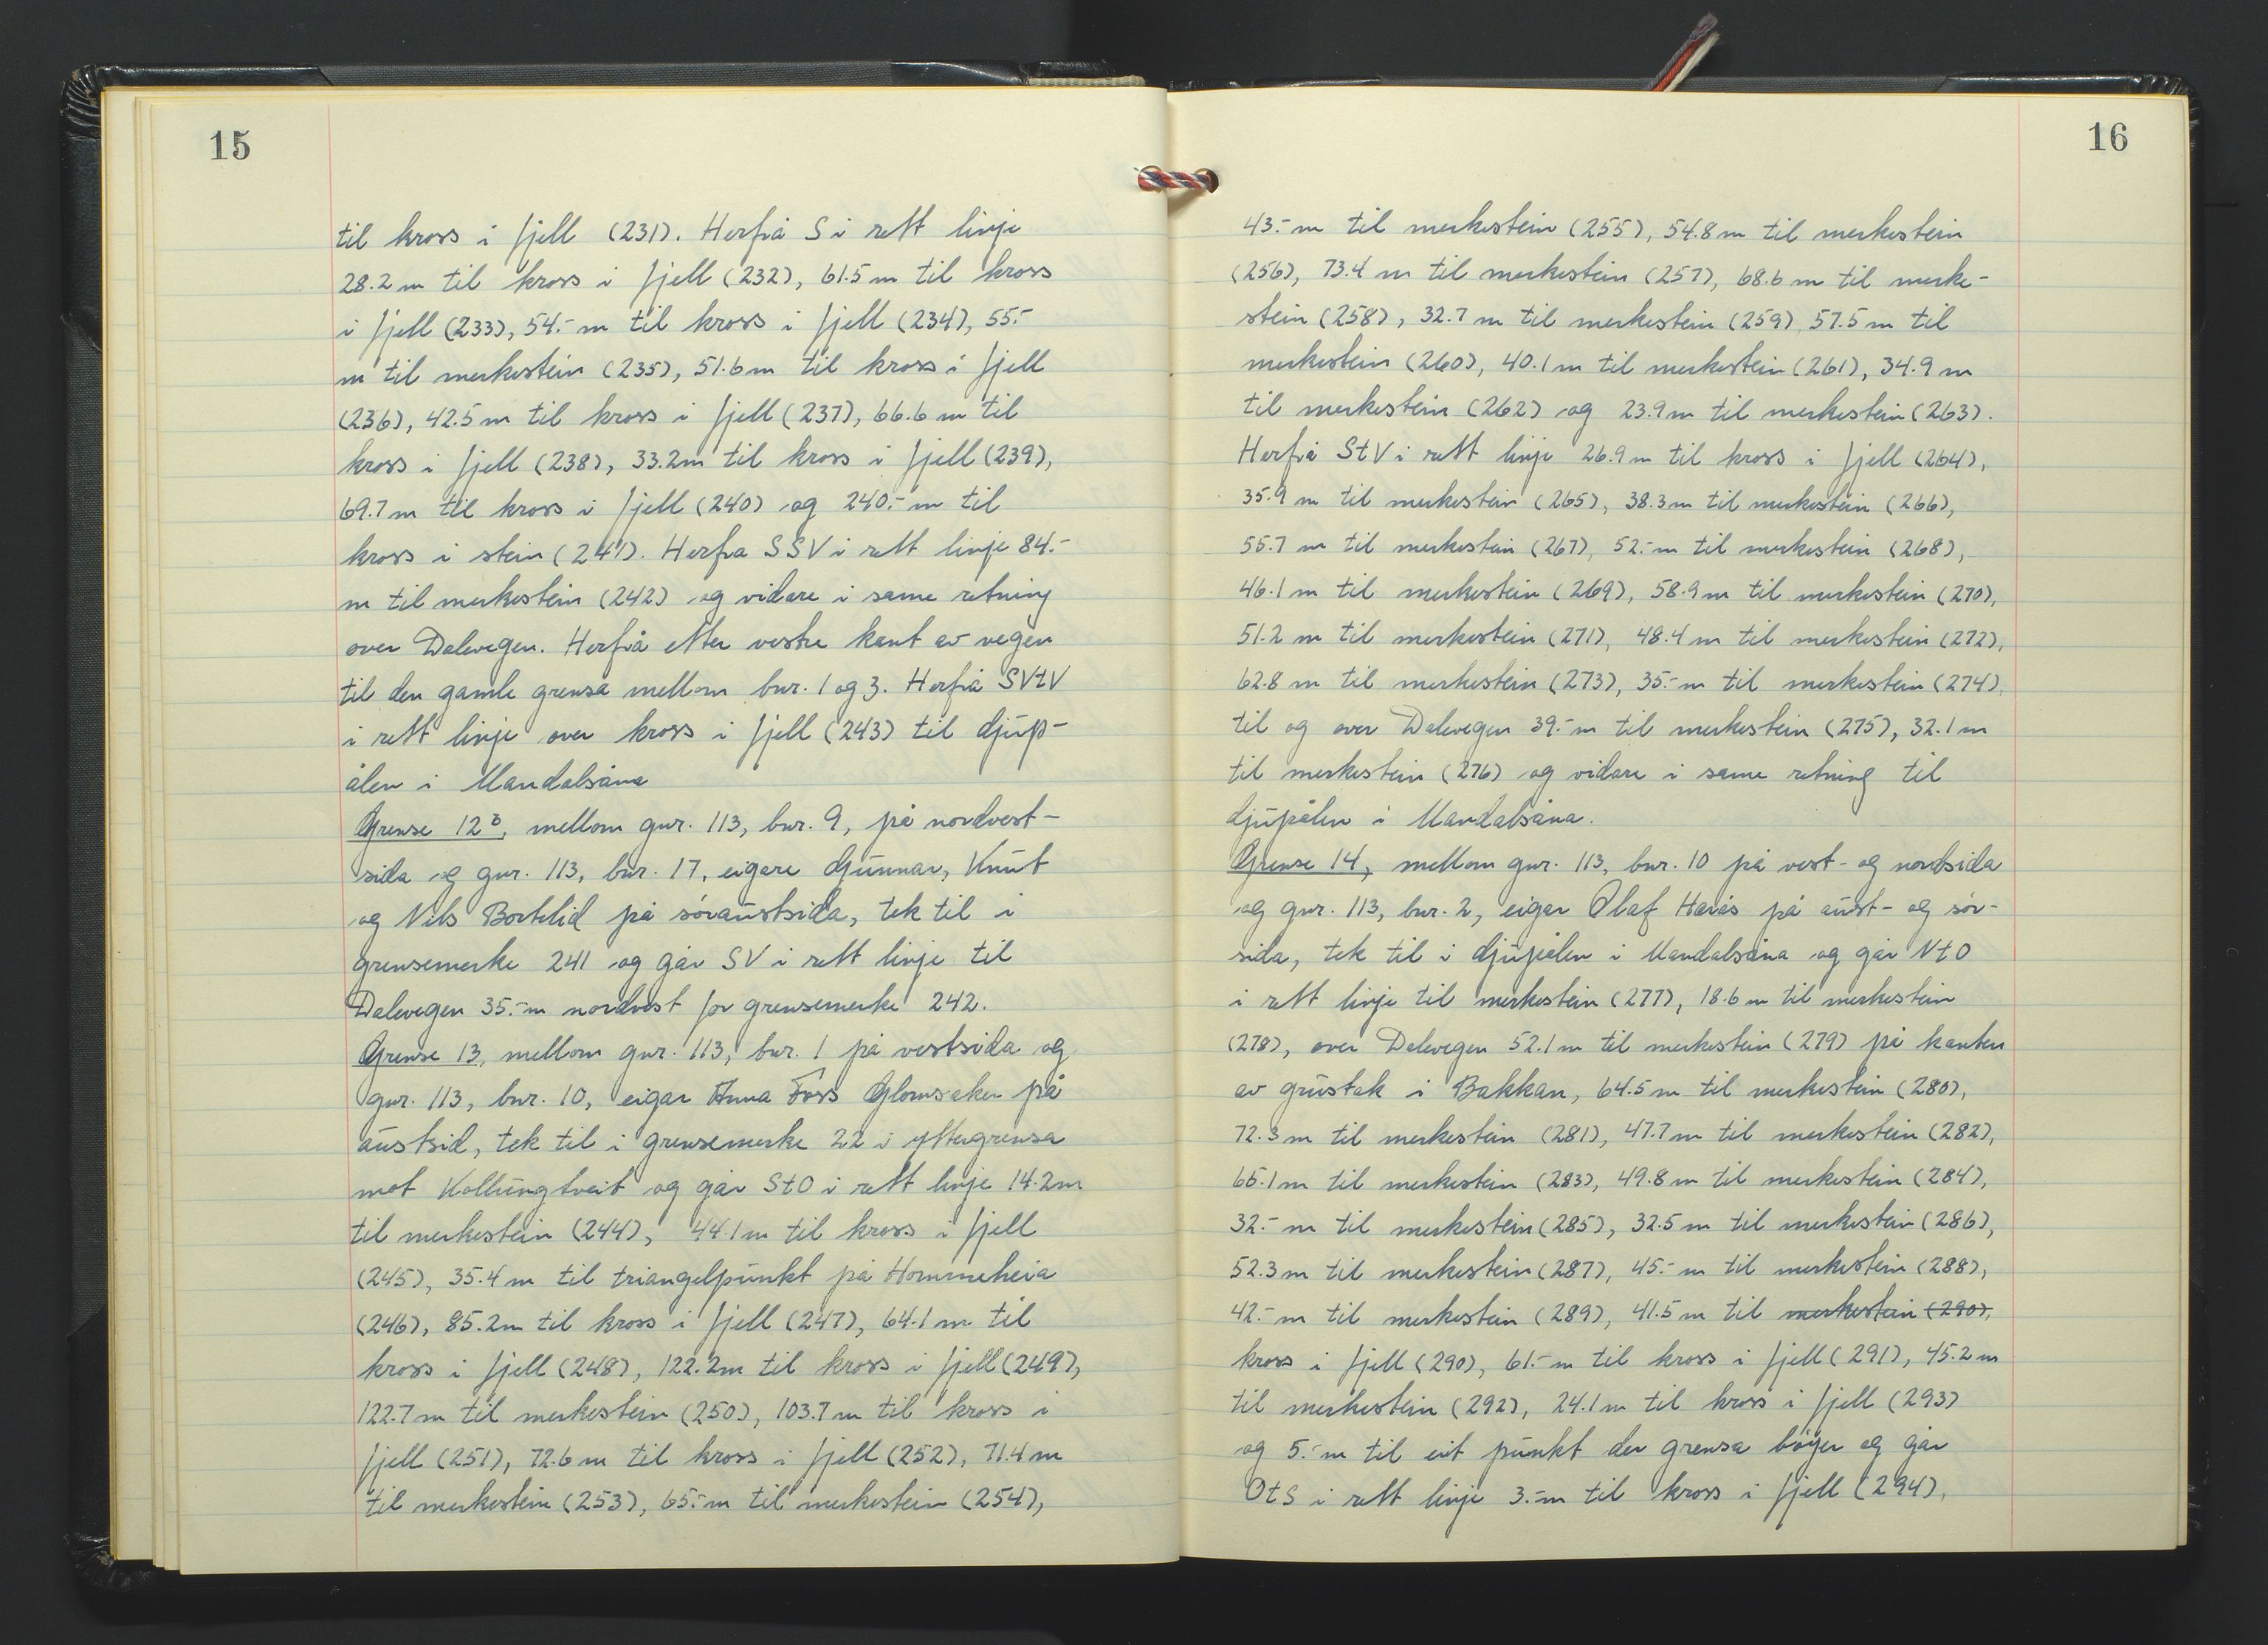 15
til kross i fjell (231). Herfrå S i rett linje
28.2 m til kross i fjell (232), 61.5 m til kross
i fjell (233), 54.- m til kross i fjell (234), 55.-
m til merkestein (235), 51.6 m til kross i fjell
(236), 42.5 m til kross i fjell (237), 66.6 m til
kross i fjell (238), 33.2 m til kross i fjell (239),
69.7 m til kross i fjell (240) og 240.- m til
kross i stein (241). Herfra SSV i rett linje 84.-
m til merkestein (242) og vidare i same retning
over Dalevegen. Herfrå etter vestre kant av vegen
til den gamle grensa mellom bnr. 1 og 3. Herfrå SVtV
i rett linje over kross i fjell (243) til djup-
ålen i Mandalsåna
Grense 12 b, mellom gnr. 113, bnr. 9, på nordvest-
sida og gnr. 113, bnr. 17, eigare Gunnar, Knut
og Nils Bortelid på søraustsida, tek til i
grensemerke 241 og går SV i rett linje til
Dalevegen 35.- m nordvest for grensemerke 242.
Grense 13, mellom gnr. 113, bnr. 1 på vestsida og
gnr. 113, bnr. 10, eigar Anna Foss Glomsaker på
austsid, tek til i grensemerke 22 i yttergrensa
mot Kollungtveit og går StO i rett linje 14.2 m
til merkestein (244), 44.1 m til kross i fjell
(245), 35.4 m til triangelpunkt på Hommeheia
(246), 85.2 m til kross i fjell (247), 64.1 m til
kross i fjell (248), 122.2 m til kross i fjell (249),
122.7 m til merkestein (250), 103.7 m til kross i
fjell (251), 72.6 m til kross i fjell (252), 71.4 m
til merkestein (253), 65.- m til merkestein (254),
16
43.- m til merkestein (255), 54.8 m til merkestein
(256), 73.4 m til merkestein (257), 68.6 m til merke-
stein (258), 32.7 m til merkestein (259), 57.5 m til
merkestein (260), 40.1 m til merkestein (261), 34.9 m
til merkestein (262) og 23.9 m til merkestein (263).
Herfrå StV i rett linje 26.9 m til kross i fjell (264),
35.9 m til merkestein (265), 38.3 m til merkestein (266),
55.7 m til merkestein (267), 52.- m til merkestein (268),
46.1 m til merkestein (269), 58.9 m til merkestein (270),
51.2 m til merkestein (271), 48.4 m til merkestein (272),
62.8 m til merkestein (273), 35.- m til merkestein (274),
til og over Dalevegen 39.- m til merkestein (275), 32.1 m
til merkestein (276) og vidare i same retning til
djupålen i Mandalsåna.
Grense 14, mellom gnr. 113, bnr. 10 på vest- og nordsida
og gnr. 113, bnr. 2, eigar Olaf Harås på aust- og sør-
sida, tek til i djupålen i Mandalsåna og går NtO
i rett linje til merkestein (277), 18.6 m til merkestein
(278), over Dalevegen 52.1 m til merkestein (279) på kanten
av grustak i Bakkan, 64.5 m til merkestein (280),
72.3 m til merkestein (281), 47.7 m til merkestein (282),
65.1 m til merkestein (283), 49.8 m til merkestein (284),
32.- m til merkestein (285), 32.5 m til merkestein (286),
52.3 m til merkestein (287), 45.- m til merkestein (288),
42.- m til merkestein (289), 41.5 m til merkestein (290),
kross i fjell (290), 61.- m til kross i fjell (291), 45.2 m
til merkestein (292), 24.1 m til kross i fjell (293)
og 5.- m til eit punkt der grensa bøyer og går
OtS i rett linje 3.- m til kross i fjell (294),